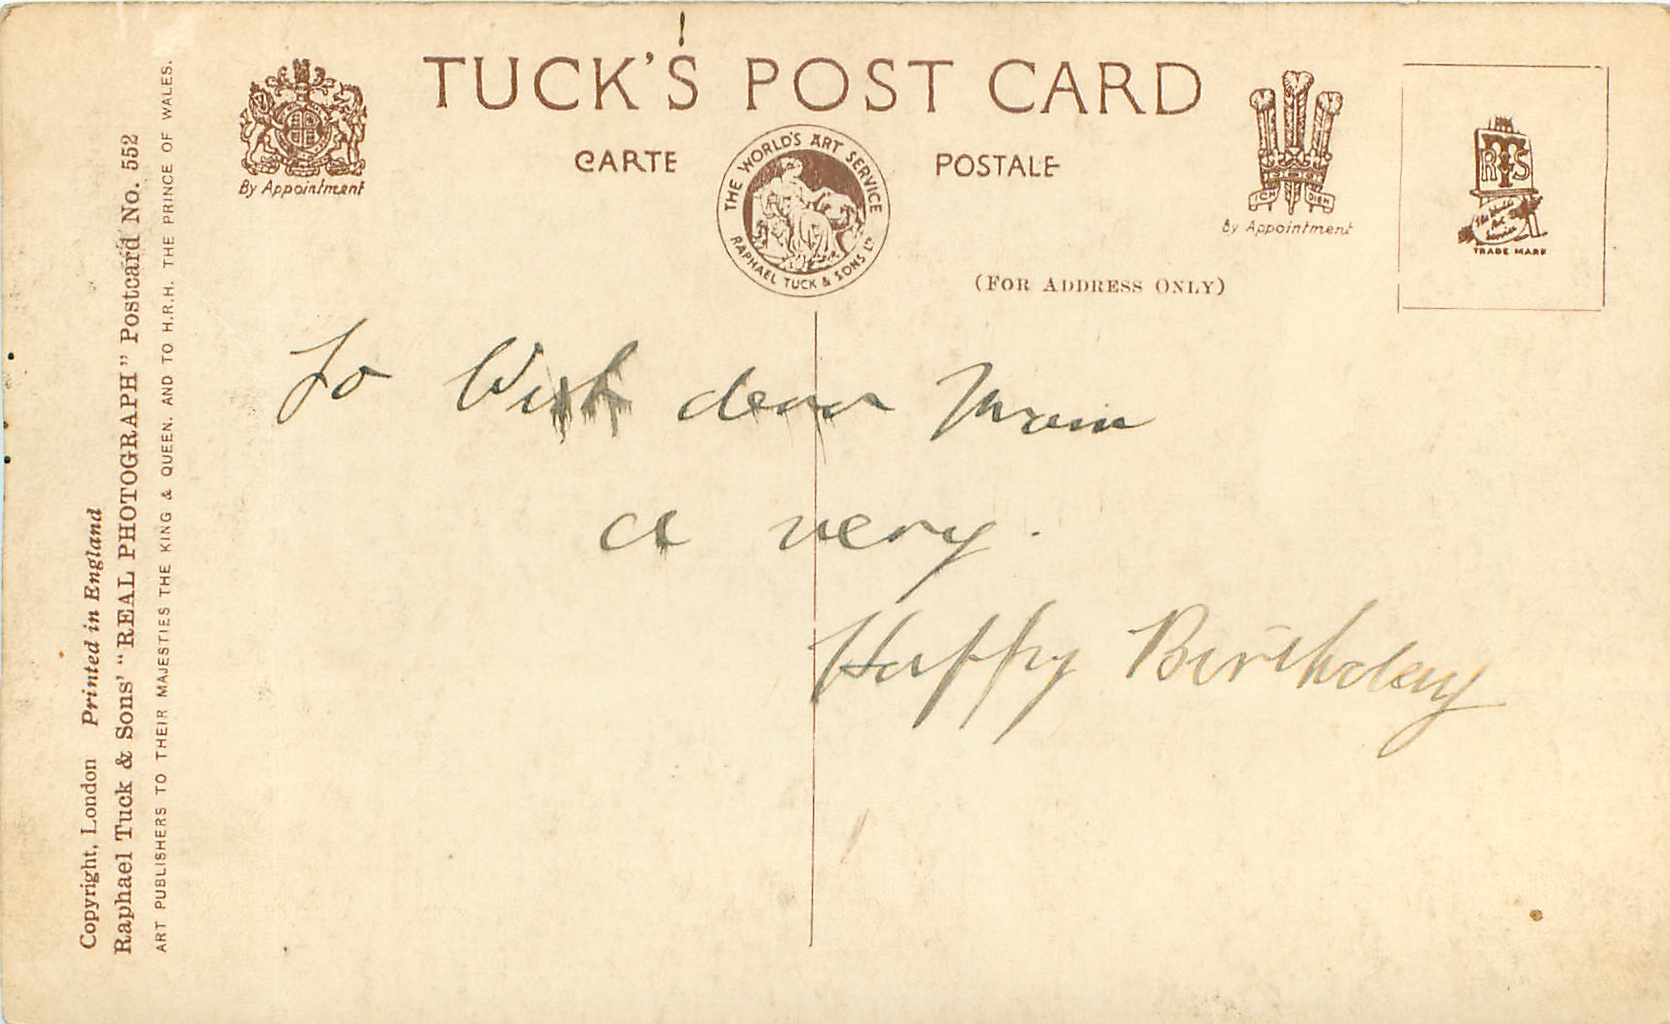 TUCK'S POST CARD
CARTE POSTALE
By Appointment
THE WORLD'S ART SERVICE
RAPHAEL TUCK & SONS LTD
ICH DIEN
By Appointment
RTS
The World's Art Service
TRADE MARK
(FOR ADDRESS ONLY)
To Wish dear Mum
a very.
Happy Birthday
Copyright, London Printed in England
Raphael Tuck & Sons' "REAL PHOTOGRAPH" Postcard No. 552
ART PUBLISHERS TO THEIR MAJESTIES THE KING & QUEEN, AND TO H.R.H. THE PRINCE OF WALES.